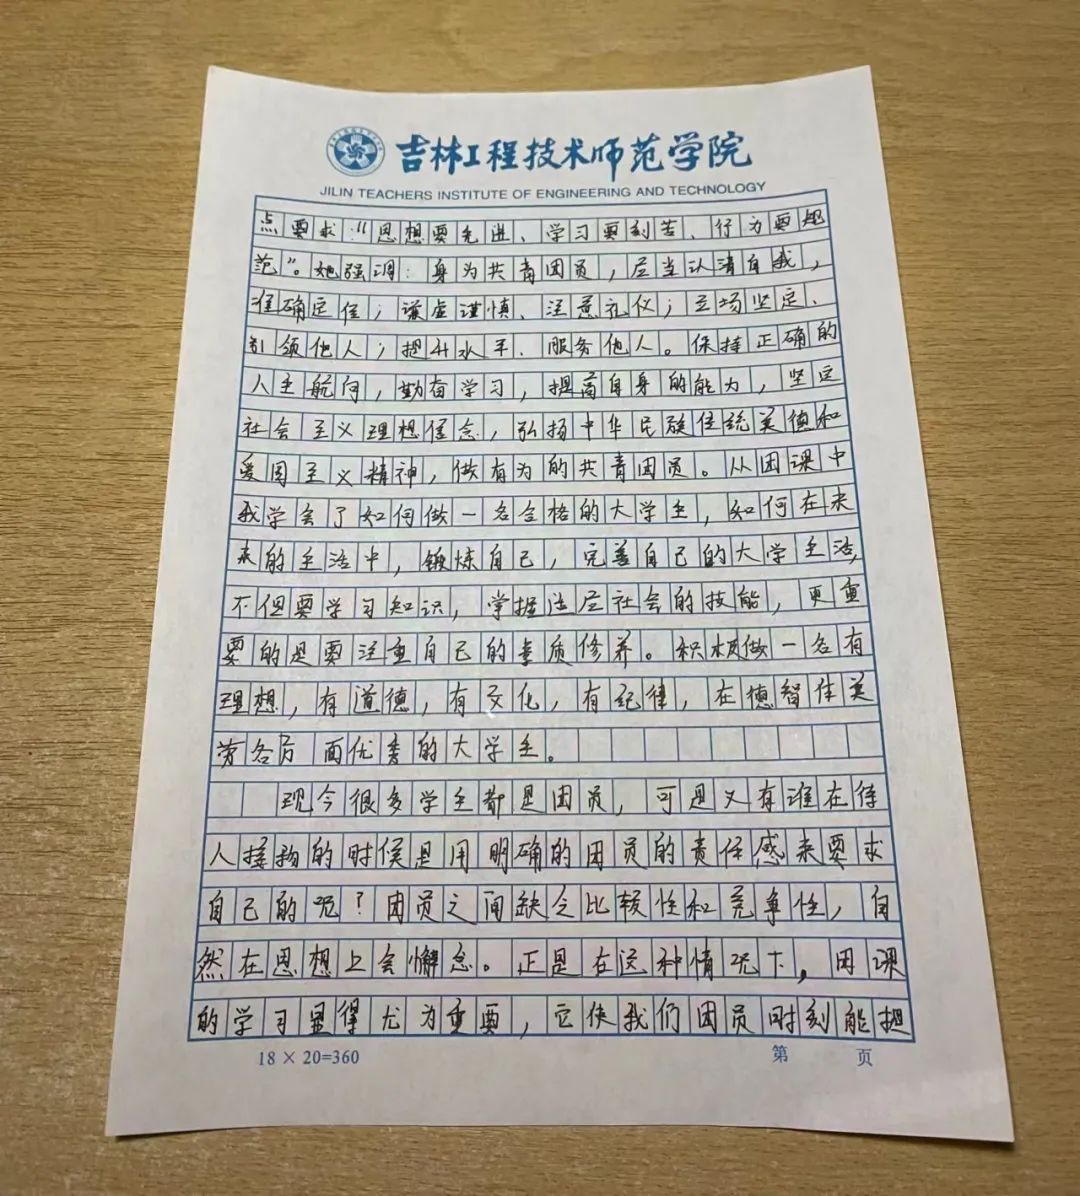 吉林工程技术师范学院
JILIN TEACHERS INSTITUTE OF ENGINEERING AND TECHNOLOGY
点要求：“思想要先进、学习要刻苦、行为要规
范”。她强调：身为共青团员，应当认清自我，
准确定位；谦虚谨慎、注意礼仪；立场坚定、
引领他人；提升水平、服务他人。保持正确的
人生航向，勤奋学习，提高自身的能力，坚定
社会主义理想信念，弘扬中华民族传统美德和
爱国主义精神，做有为的共青团员。从团课中
我学会了如何做一名合格的大学生，如何在未
来的生活中，锻炼自己，完善自己的大学生活，
不但要学习知识，掌握适应社会的技能，更重
要的是要注重自己的素质修养。积极做一名有
理想，有道德，有文化，有纪律，在德智体美
劳各方面优秀的大学生。
现今很多学生都是团员，可是又有谁在待
人接物的时候是用明确的团员的责任感来要求
自己的呢？团员之间缺乏比较性和竞争性，自
然在思想上会懈怠。正是在这种情况下，团课
的学习显得尤为重要，它使我们团员时刻能把
18 × 20=360
第 页